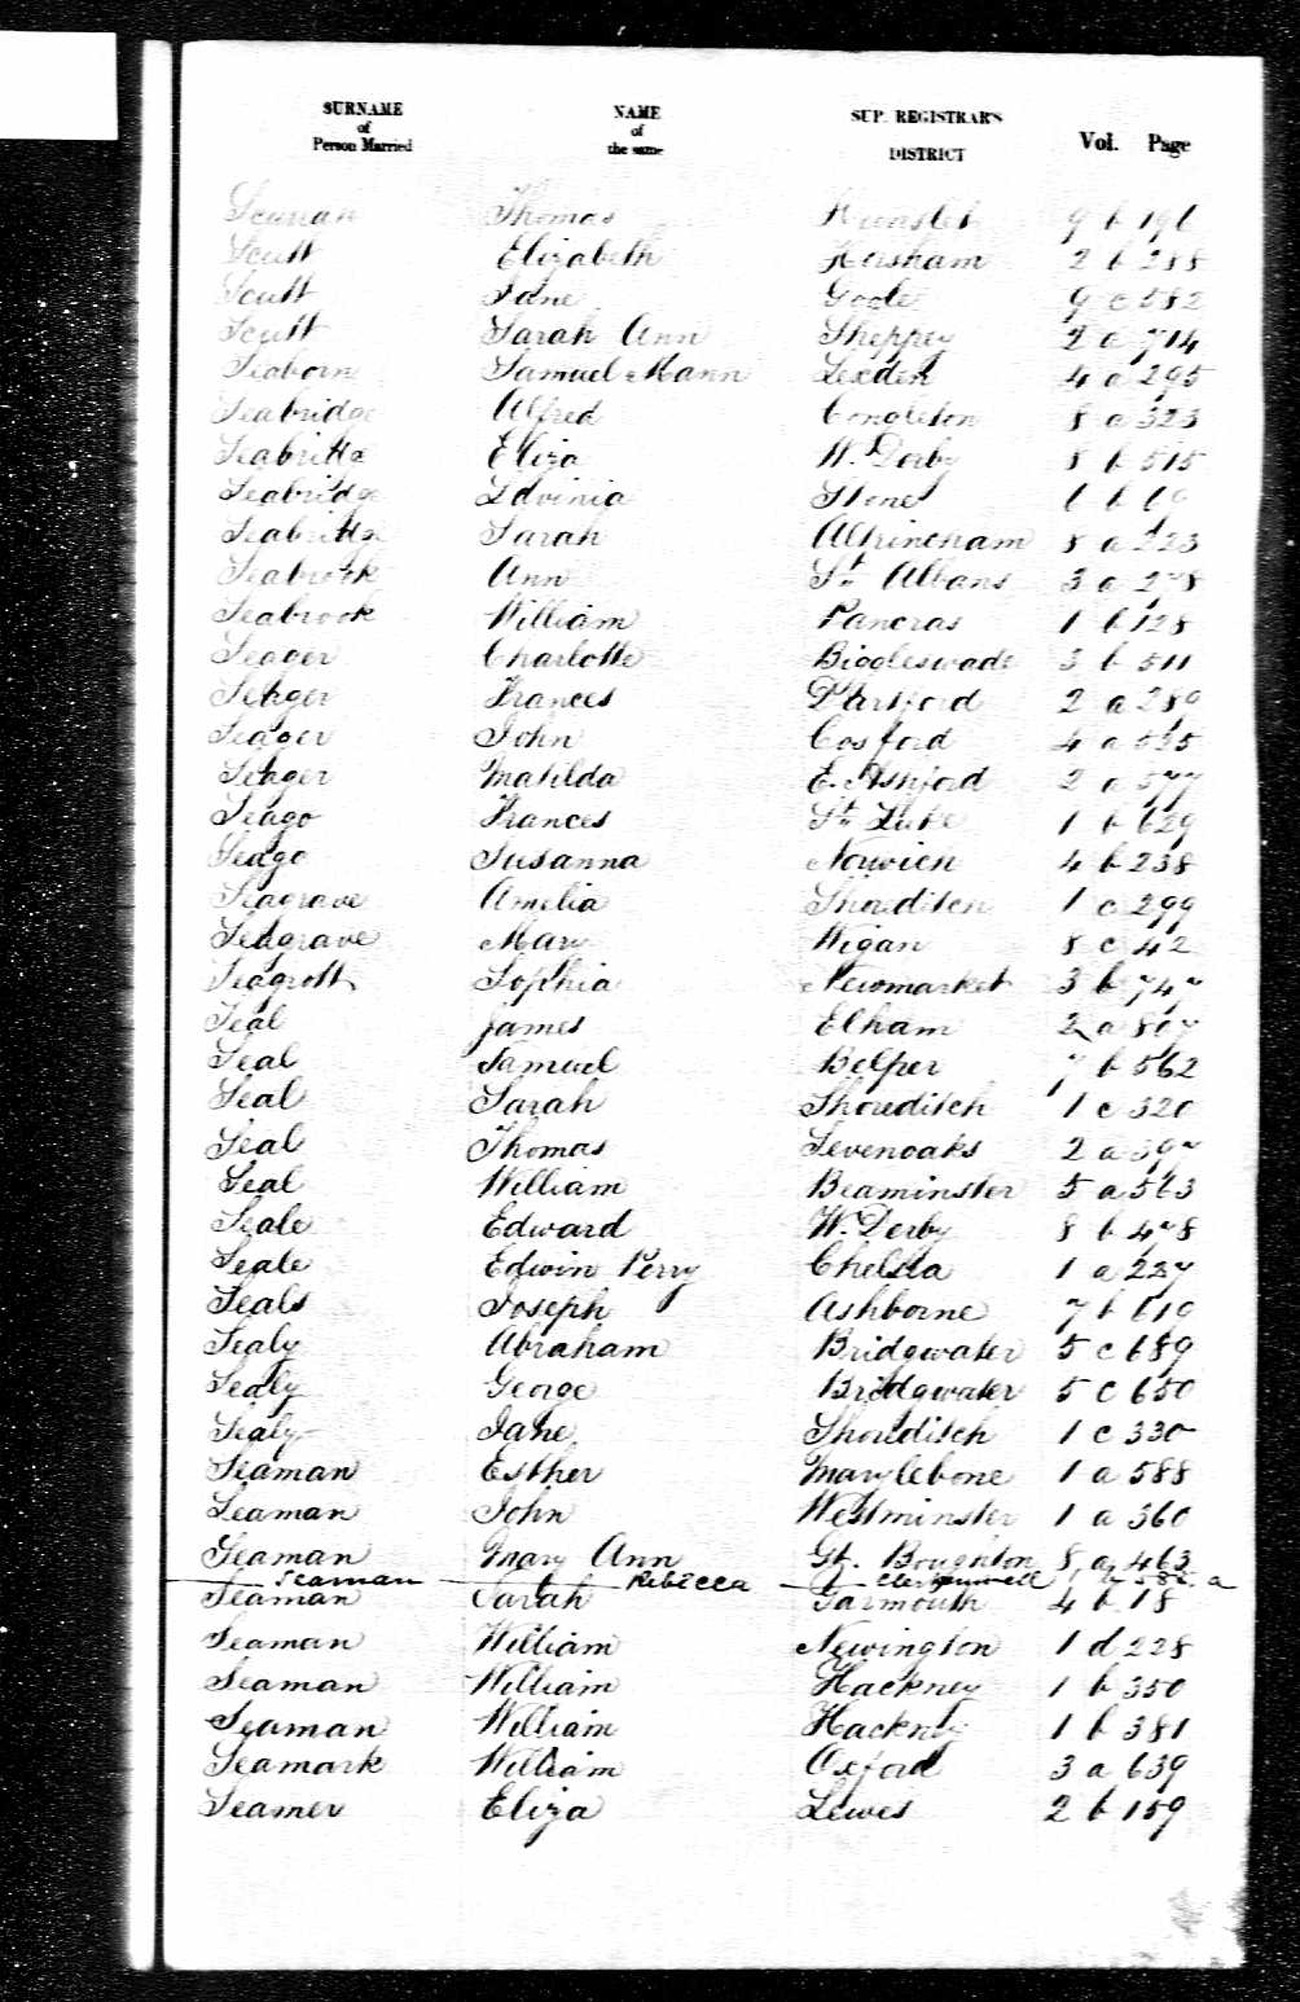 SURNAME
of
Person Married
NAME
of
the same
SUP. REGISTRAR'S
DISTRICT
Vol. Page
Scurrah Thomas Hunslet 9 b 196
Scutt Elizabeth Horsham 2 b 288
Scutt Jane Goole 9 c 582
Scutt Sarah Ann Sheppey 2 a 714
Seaborn Samuel Mann Lexden 4 a 295
Seabridge Alfred Congleton 8 a 323
Seabridge Eliza W. Derby 8 b 515
Seabridge Lavinia Stone 6 b 69
Seabridge Sarah Altrincham 8 a 223
Seabrook Ann St. Albans 3 a 278
Seabrook William Pancras 1 b 128
Seager Charlotte Biggleswade 3 b 511
Seager Frances Dartford 2 a 289
Seager John Cosford 4 a 535
Seager Matilda E. Ashford 2 a 577
Seago Frances St. Luke 1 b 629
Seago Susanna Norwich 4 b 238
Seagrave Amelia Shoreditch 1 c 299
Seagrave Mary Wigan 8 c 42
Seagrott Sophia Newmarket 3 b 747
Seal James Elham 2 a 807
Seal Samuel Belper 7 b 562
Seal Sarah Shoreditch 1 c 320
Seal Thomas Sevenoaks 2 a 397
Seal William Beaminster 5 a 563
Seale Edward W. Derby 8 b 478
Seale Edwin Perry Chelsea 1 a 227
Seals Joseph Ashborne 7 b 619
Sealy Abraham Bridgwater 5 c 689
Sealy George Bridgwater 5 c 650
Sealy Jane Shoreditch 1 c 330
Seaman Esther Marylebone 1 a 588
Seaman John Westminster 1 a 360
Seaman Mary Ann Gt. Boughton 8 a 463
Seaman Rebecca Clerkenwell
Seaman Sarah Yarmouth 4 b 18
Seaman William Newington 1 d 228
Seaman William Hackney 1 b 350
Seaman William Hackney 1 b 381
Seamark William Oxford 3 a 639
Seamer Eliza Lewes 2 b 159